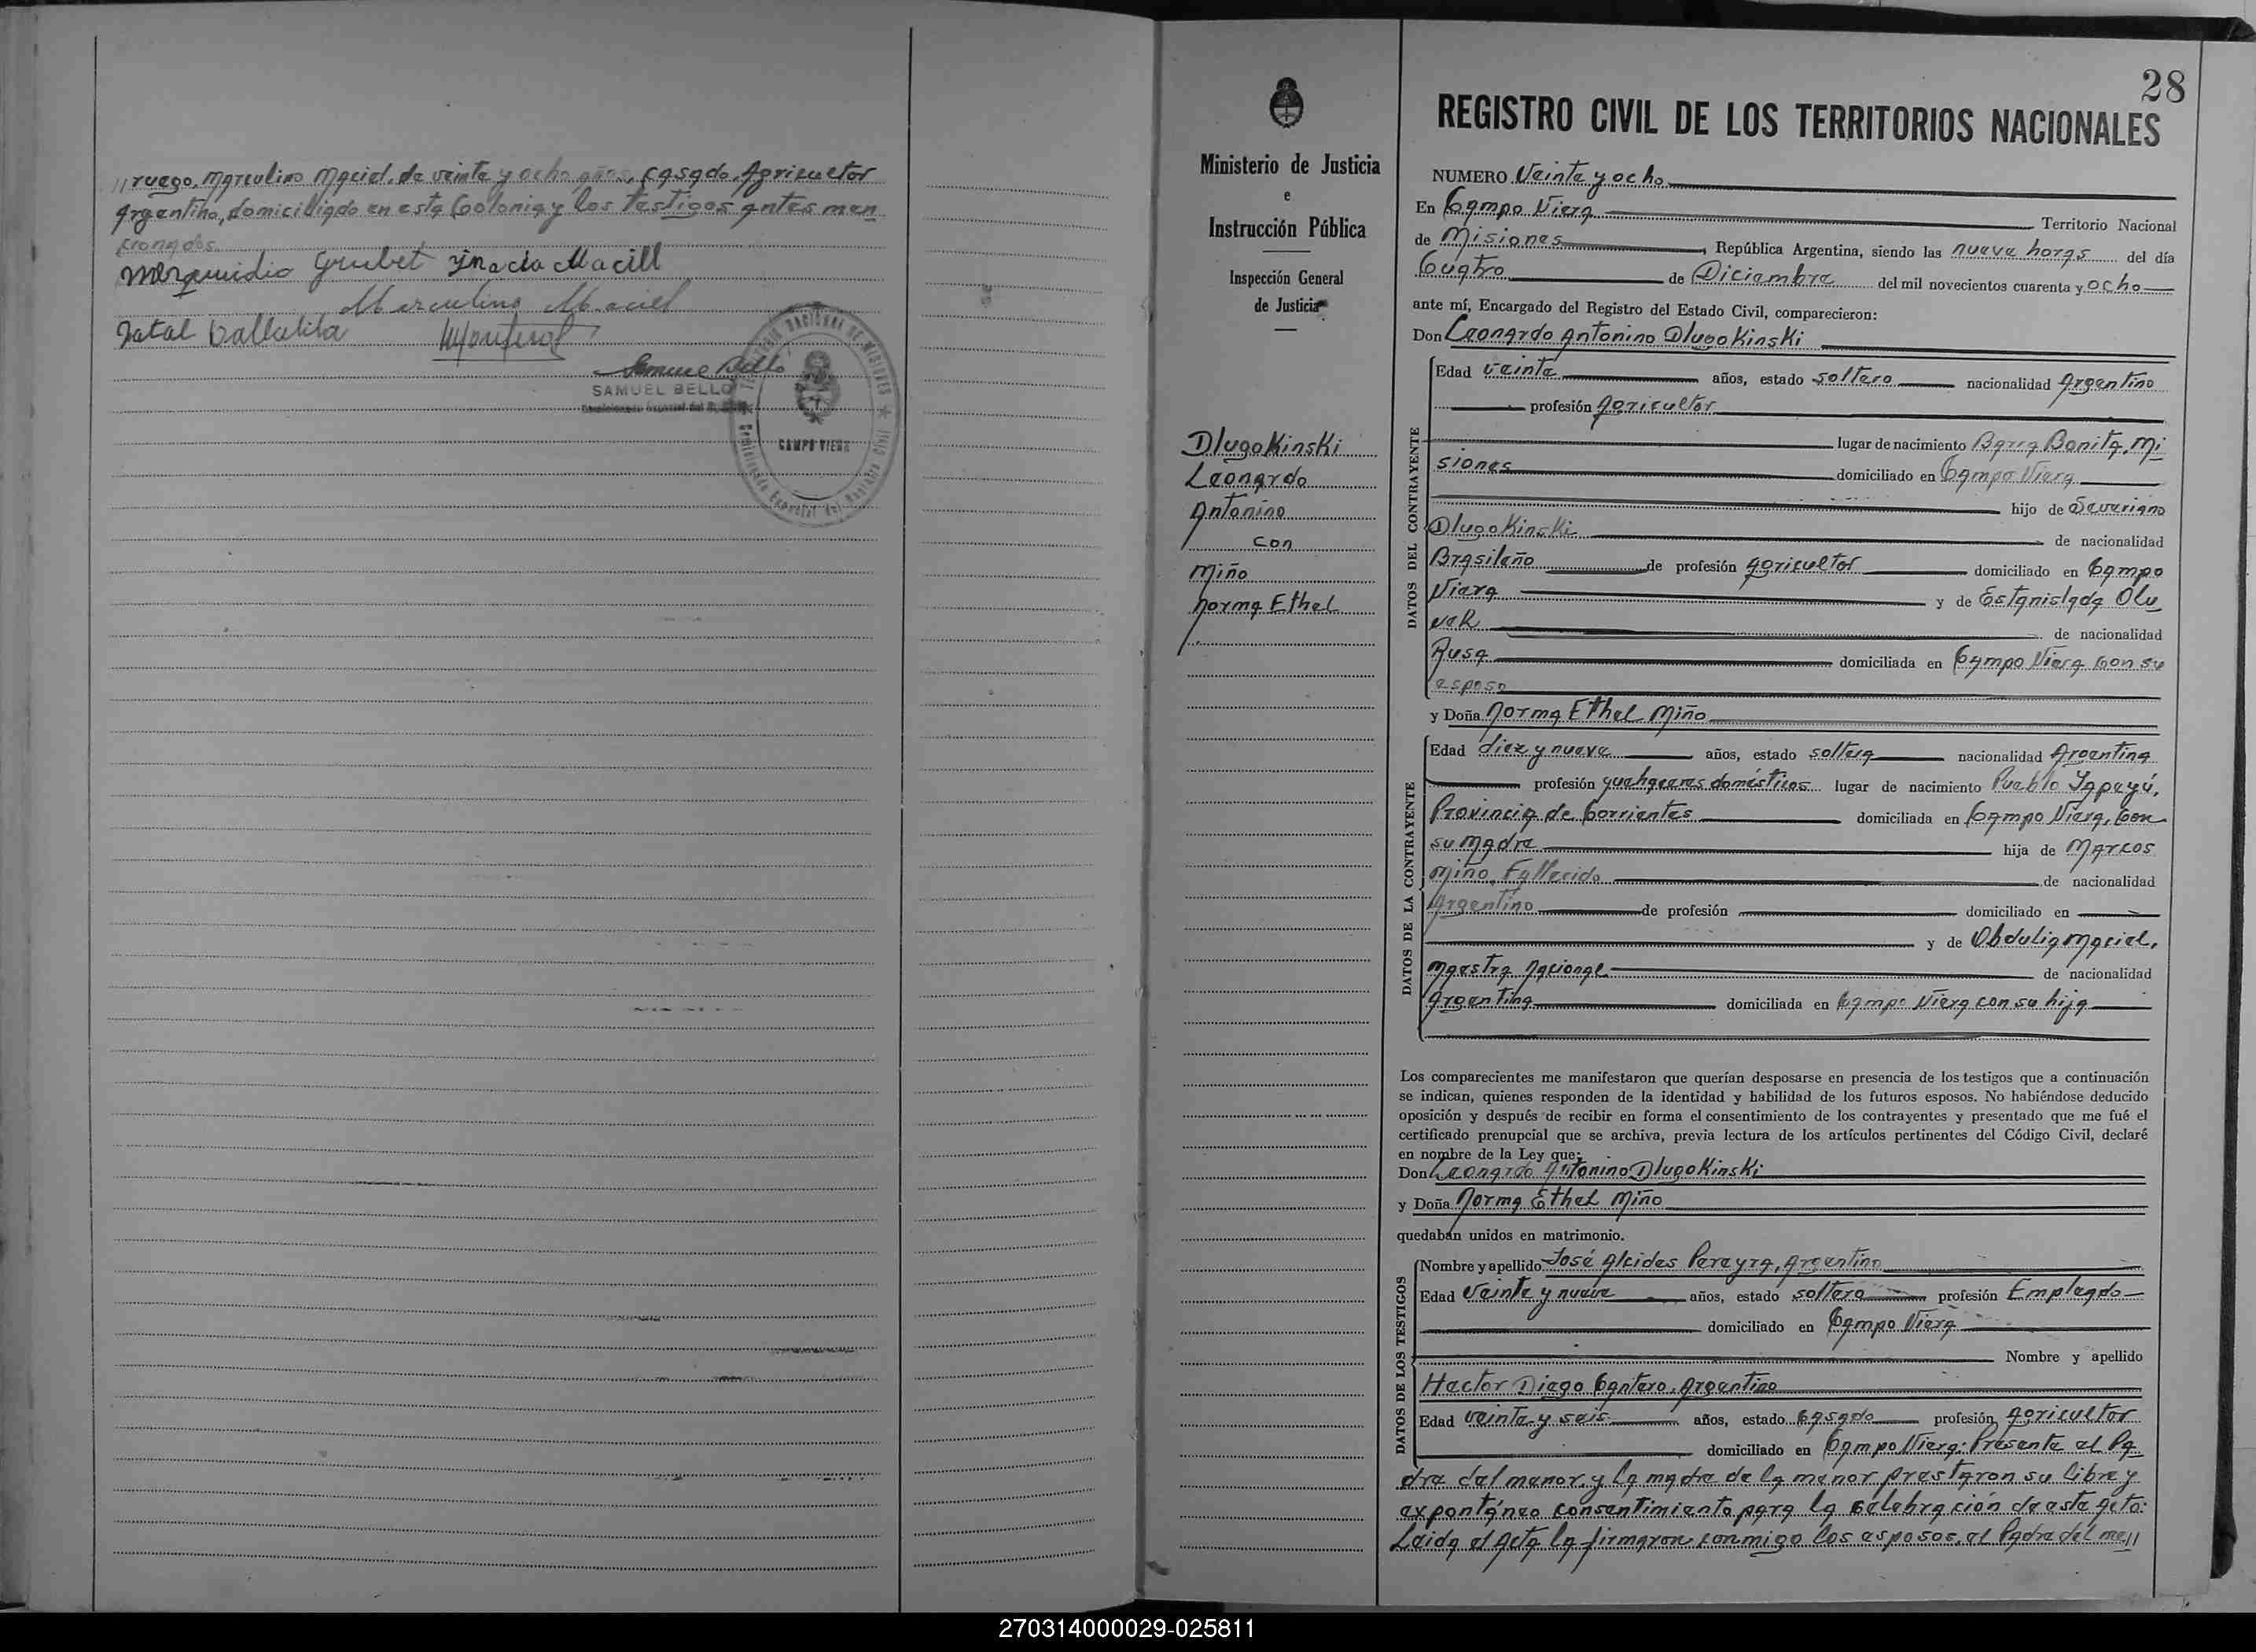 // ruego, Marculino Maciel, de veinte y ocho años, casado, Agricultor
Argentino, domiciliado en esta Colonia y los testigos antes men
cionados
Grubet Ynacio Macill
Marculino Maciel
Natal
Samuel Bello
SAMUEL BELLO
CAMPO VIERA
28
REGISTRO CIVIL DE LOS TERRITORIOS NACIONALES
Ministerio de Justicia
e
Instrucción Pública
Inspección General
de Justicia
DlugoKinski
Leonardo
Antonino
con
Miño
Norma Ethel
NUMERO Veinte y ocho
En Campo Viera Territorio Nacional
de Misiones, República Argentina, siendo las nueve horas del día
Cuatro de Diciembre del mil novecientos cuarenta y ocho
ante mí, Encargado del Registro del Estado Civil, comparecieron:
Don Leonardo Antonino DlugoKinski
DATOS DEL CONTRAYENTE
Edad veinte años, estado soltero nacionalidad Argentino
profesión Agricultor
lugar de nacimiento Barra Bonita, Mi
siones domiciliado en Campo Viera
hijo de Severiano
DlugoKinski de nacionalidad
Brasileño de profesión agricultor domiciliado en Campo
Viera y de Estanislada Olu
vek de nacionalidad
Rusa domiciliada en Campo Viera con su
esposo
y Doña Norma Ethel Miño
DATOS DE LA CONTRAYENTE
Edad diez y nueve años, estado soltera nacionalidad Argentina
profesión quehaceres domésticos lugar de nacimiento Pueblo Yapeyú,
Provincia de Corrientes domiciliada en Campo Viera, con
su madre hija de Marcos
Miño, Fallecido de nacionalidad
Argentino de profesión domiciliado en
y de Obdulia Maciel,
Maestra Nacional de nacionalidad
Argentina domiciliada en Campo Viera con su hija
Los comparecientes me manifestaron que querían desposarse en presencia de los testigos que a continuación
se indican, quienes responden de la identidad y habilidad de los futuros esposos. No habiéndose deducido
oposición y después de recibir en forma el consentimiento de los contrayentes y presentado que me fué el
certificado prenupcial que se archiva, previa lectura de los artículos pertinentes del Código Civil, declaré
en nombre de la Ley que:
Don Leonardo Antonino DlugoKinski
y Doña Norma Ethel Miño
quedaban unidos en matrimonio.
DATOS DE LOS TESTIGOS
Nombre y apellido José Alcides Pereyra, Argentino
Edad veinte y nueve años, estado soltero profesión Empleado
domiciliado en Campo Viera
Nombre y apellido
Hector Diego Cantero, Argentino
Edad veinte y seis años, estado casado profesión agricultor
domiciliado en Campo Viera: Presente el Pa
dre del menor, y la madre de la menor prestaron su libre y
expontáneo consentimiento para la celebración de este acto:
Leida el acta la firmaron conmigo los esposos, el Padre del me//
270314000029-025811